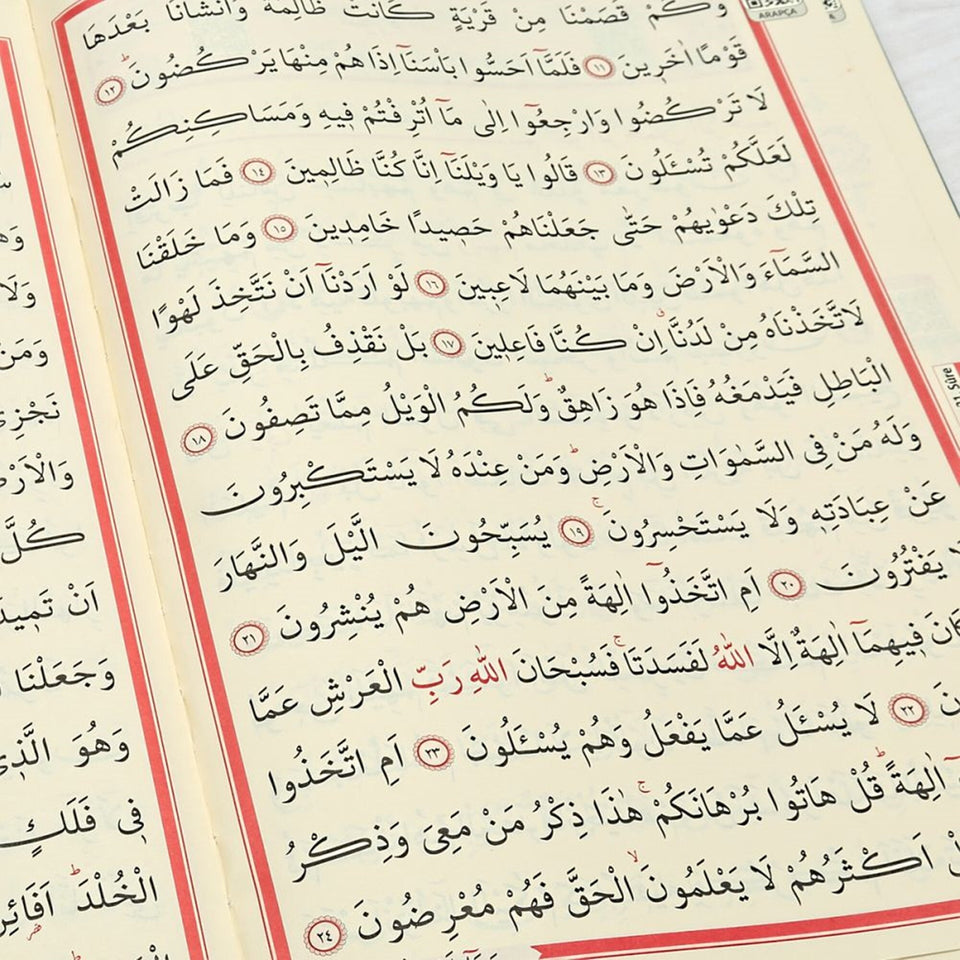 ARAPÇA
وَكَمْ قَصَمْنَا مِنْ قَرْيَةٍ كَانَتْ ظَالِمَةً وَاَنْشَأْنَا بَعْدَهَا
قَوْمًا اٰخَرٖينَ ﴿١١﴾ فَلَمَّٓا اَحَسُّوا بَاْسَنَٓا اِذَا هُمْ مِنْهَا يَرْكُضُونَۜ ﴿١٢﴾
لَا تَرْكُضُوا وَارْجِعُٓوا اِلٰى مَٓا اُتْرِفْتُمْ فٖيهِ وَمَسَاكِنِكُمْ
لَعَلَّكُمْ تُسْـَٔلُونَ ﴿١٣﴾ قَالُوا يَا وَيْلَنَٓا اِنَّا كُنَّا ظَالِمٖينَ ﴿١٤﴾ فَمَا زَالَتْ
تِلْكَ دَعْوٰيهُمْ حَتّٰى جَعَلْنَاهُمْ حَصٖيدًا خَامِدٖينَ ﴿١٥﴾ وَمَا خَلَقْنَا
السَّمَٓاءَ وَالْاَرْضَ وَمَا بَيْنَهُمَا لَاعِبٖينَ ﴿١٦﴾ لَوْ اَرَدْنَٓا اَنْ نَتَّخِذَ لَهْوًا
لَاتَّخَذْنَاهُ مِنْ لَدُنَّاۗ اِنْ كُنَّا فَاعِلٖينَ ﴿١٧﴾ بَلْ نَقْذِفُ بِالْحَقِّ عَلَى
الْبَاطِلِ فَيَدْمَغُهُ فَاِذَا هُوَ زَاهِقٌۜ وَلَكُمُ الْوَيْلُ مِمَّا تَصِفُونَ ﴿١٨﴾
وَلَهُ مَنْ فِى السَّمٰوَاتِ وَالْاَرْضِۜ وَمَنْ عِنْدَهُ لَا يَسْتَكْبِرُونَ
عَنْ عِبَادَتِهٖ وَلَا يَسْتَحْسِرُونَۚ ﴿١٩﴾ يُسَبِّحُونَ الَّيْلَ وَالنَّهَارَ
لَا يَفْتُرُونَ ﴿٢٠﴾ اَمِ اتَّخَذُٓوا اٰلِهَةً مِنَ الْاَرْضِ هُمْ يُنْشِرُونَ ﴿٢١﴾
كَانَ فٖيهِمَٓا اٰلِهَةٌ اِلَّا اللّٰهُ لَفَسَدَتَاۚ فَسُبْحَانَ اللّٰهِ رَبِّ الْعَرْشِ عَمَّا
﴿٢٢﴾ لَا يُسْـَٔلُ عَمَّا يَفْعَلُ وَهُمْ يُسْـَٔلُونَ ﴿٢٣﴾ اَمِ اتَّخَذُوا
اٰلِهَةًۜ قُلْ هَاتُوا بُرْهَانَكُمْۚ هٰذَا ذِكْرُ مَنْ مَعِىَ وَذِكْرُ
اَكْثَرُهُمْ لَا يَعْلَمُونَۙ الْحَقَّ فَهُمْ مُعْرِضُونَ ﴿٢٤﴾
وَلَا
وَمَنْ
نَجْزِى
وَالْاَرْضَ
كُلَّ
اَنْ تَمٖيدَ
وَجَعَلْنَا
وَهُوَ الَّذٖى
فٖى فَلَكٍ
الْخُلْدَۜ اَفَائِنْ